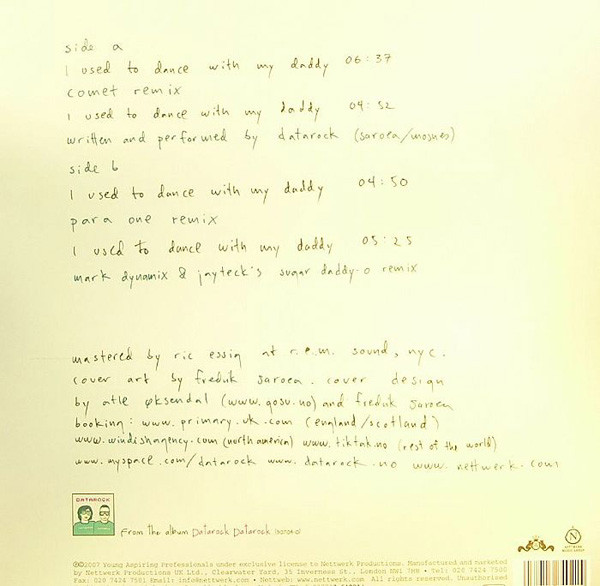 side a
I used to dance with my daddy 06:37
comet remix
I used to dance with my daddy 04:52
written and performed by datarock (saroea/mosnes)
side b
I used to dance with my daddy 04:50
para one remix
I used to dance with my daddy 05:25
mark dynamix & jayteck's sugar daddy-o remix
mastered by ric essig at r.e.m. sound, nyc.
cover art by fredrik saroea. cover design
by atle øksendal (www.qosu.no) and fredrik saroea
booking: www.primary.uk.com (england/scotland)
www.windishagency.com (north america) www.tiktak.no (rest of the world)
www.myspace.com/datarock www.datarock.no www.nettwerk.com
DATAROCK
From the album Datarock Datarock
N
℗©2007 Young Aspiring Professionals under exclusive license to Nettwerk Productions. Manufactured and marketed
by Nettwerk Productions UK Ltd., Clearwater Yard, 35 Inverness St., London NW1 7HB • Tel: 020 7424 7500
Fax: 020 7424 7501 Email: info@nettwerk.com • Nettweb: www.nettwerk.com. All rights reserved. Unauthorised